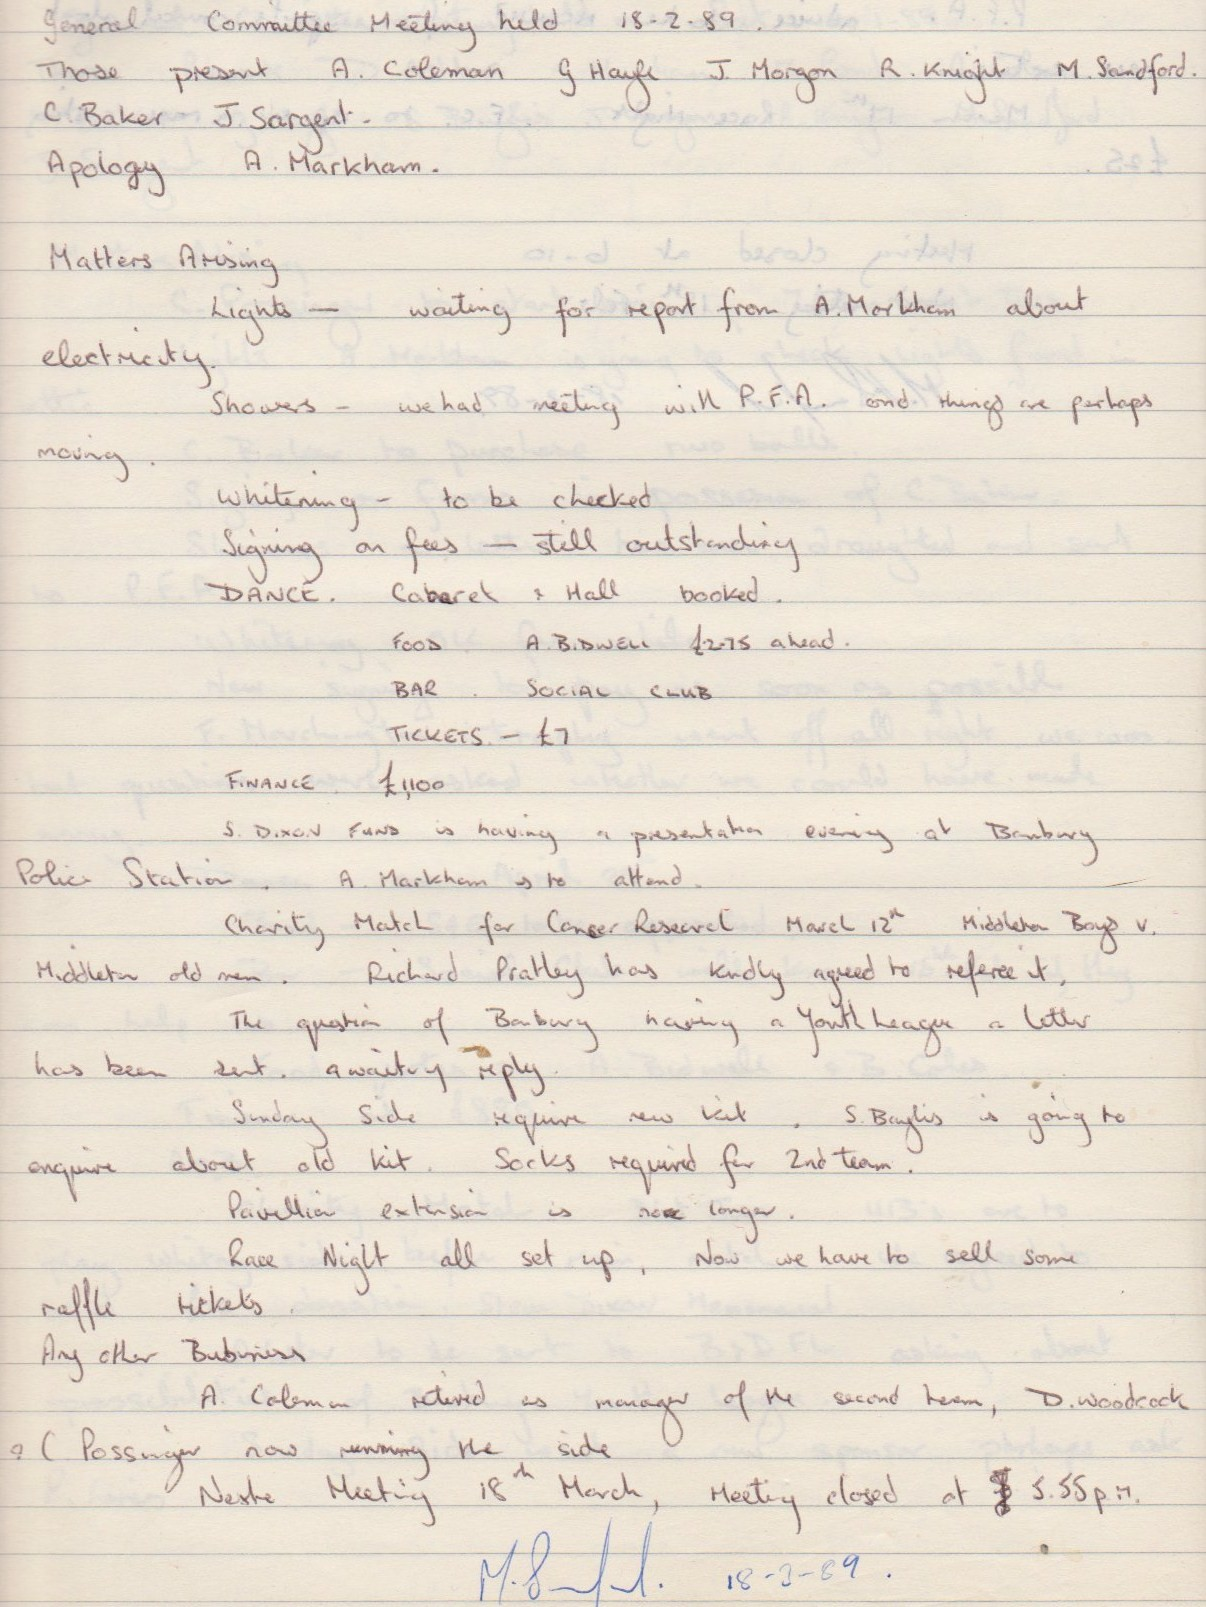 General Committee Meeting held 18-2-89.
Those present A. Coleman G Hayle J. Morgan R. Knight M. Sandford.
C. Baker J. Sargent.
Apology A. Markham.
Matters Arising
Lights — waiting for report from A. Markham about
electricity.
Showers - we had meeting with P.F.A. and things are perhaps
moving.
Whitening - to be checked
Signing on fees — still outstanding
DANCE. Cabaret & Hall booked.
FOOD A. BIDWELL £2.75 ahead.
BAR. SOCIAL CLUB
TICKETS. - £7
FINANCE £1,100
S. DIXON FUND is having a presentation evening at Banbury
Police Station. A. Markham is to attend.
Charity Match for Cancer Research March 12th Middleton Boys v.
Middleton old men. Richard Pratley has kindly agreed to referee it.
The question of Banbury having a Youth League a letter
has been sent. awaiting reply.
Sunday Side require new kit. S. Baylis is going to
enquire about old kit. Socks required for 2nd team.
Pavillion extension is longer.
Race Night all set up, Now we have to sell some
raffle tickets.
Any other Bubiniess
A. Coleman retired as manager of the second team, D. Woodcock
? C Possinger now running the side
Nexte Meeting 18th March, Meeting closed at 5.55 p.m.
M. Sandford. 18-3-89.